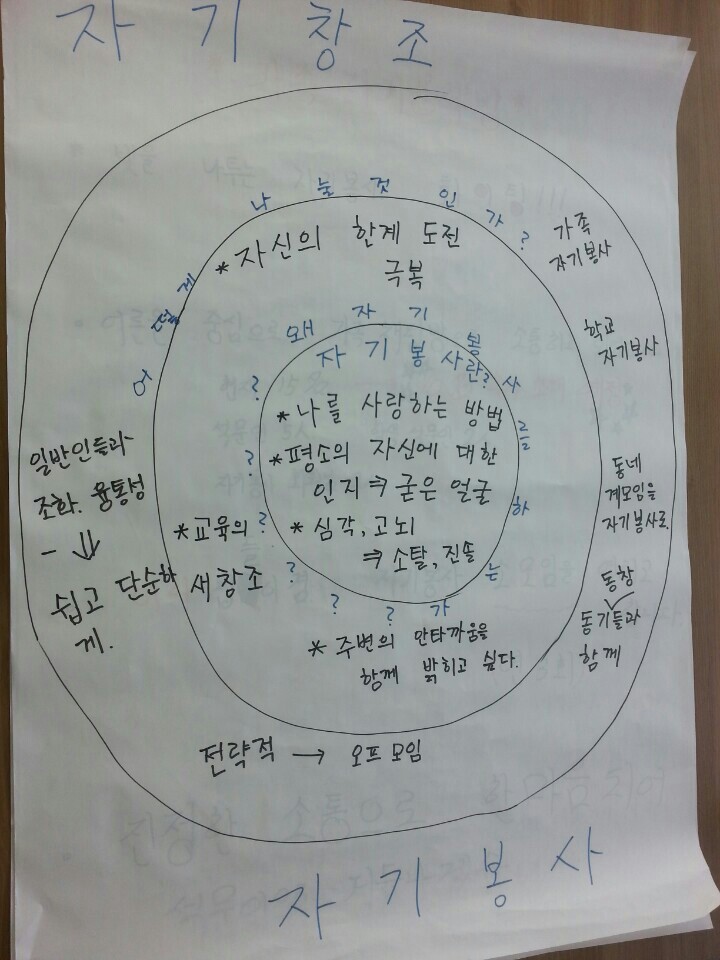 자기창조
어떻게 나눌것인가?
* 자신의 한계 도전
극복
왜 자기봉사를 하는가? ? ? ? ? ?
자기봉사란?
* 나를 사랑하는 방법
* 평소의 자신에 대한
인지 ⇒ 굳은 얼굴
* 심각, 고뇌
⇒ 소탈, 진솔
* 교육의
새창조
* 주변의 안타까움을
함께 밝히고 싶다.
가족
자기봉사
학교
자기봉사
동네
계모임을
자기봉사로.
동창
동기들과
함께
일반인들과
조화. 융통성
- ⇓
쉽고 단순하
게.
전략적 → 오프모임
자기봉사